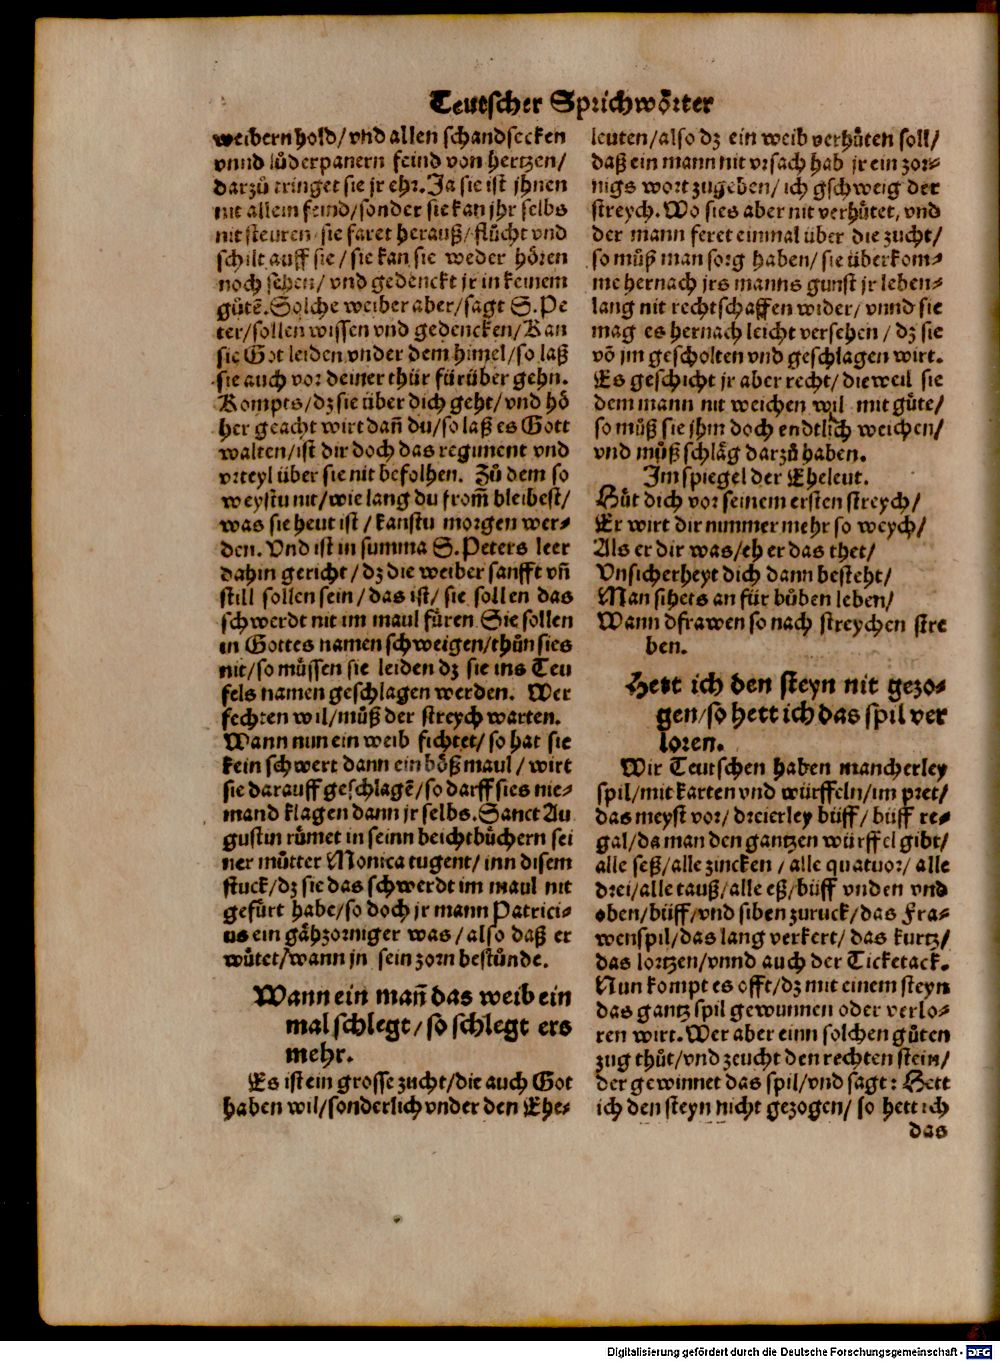 Teutscher Sprichwörter
weibern hold/ vnd allen schandsecken
vnnd lůderpanern feind von hertzen/
darzů tringet sie jr ehr. Ja sie ist jhnen
nit allein feind/ sonder sie kan jhr selbs
nit steuren/ sie faret herauß/ flůcht vnd
schilt auff sie/ sie kan sie weder hören
noch sehen/ vnd gedenckt jr in keinem
gůtẽ. Solche weiber aber/ sagt S. Pe
ter/ sollen wissen vnd gedencken/ Kan
sie Got leiden vnder dem himel/ so laß
sie auch vor deiner thür fürüber gehn.
Kompts/ dz sie über dich geht/ vnd hö
her geacht wirt dañ du/ so laß es Gott
walten/ ist dir doch das regiment vnd
vrteyl über sie nit befolhen. Zů dem so
weystu nit/ wie lang du from̃ bleibest/
was sie heut ist/ kanstu morgen wer-
den. Vnd ist in summa S. Peters leer
dahin gericht/ dz die weiber sanfft vñ
still sollen sein/ das ist/ sie sollen das
schwerdt nit im maul füren. Sie sollen
in Gottes namen schweigen/ thůn sies
nit/ so müssen sie leiden dz sie ins Teu
fels namen geschlagen werden. Wer
fechten wil/ můß der streych warten.
Wann nun ein weib fichtet/ so hat sie
kein schwert dann ein böß maul/ wirt
sie darauff geschlagẽ/ so darff sies nie-
mand klagen dann jr selbs. Sanct Au
gustin růmet in seinn beichtbůchern sei
ner můtter Monica tugent/ inn disem
stuck/ dz sie das schwerdt im maul nit
gefürt habe/ so doch jr mann Patrici-
us ein gähzorniger was/ also daß er
wůtet/ wann jn sein zorn bestůnde.
Wann ein mañ das weib ein
mal schlegt/ so schlegt ers
mehr.
Es ist ein grosse zucht/ die auch Got
haben wil/ sonderlich vnder den Ehe-
leuten/ also dz ein weib verhůten soll/
daß ein mann nit vrsach hab jr ein zor-
nigs wort zugeben/ ich gschweig der
streych. Wo sies aber nit verhůtet, vnd
der mann feret einmal über die zucht/
so můß man sorg haben/ sie überkom-
me hernach jrs manns gunst jr leben-
lang nit rechtschaffen wider/ vnnd sie
mag es hernach leicht versehen/ dz sie
võ jm gescholten vnd geschlagen wirt.
Es geschicht jr aber recht/ dieweil sie
dem mann nit weichen wil mit gůte/
so můß sie jhm doch endtlich weichen/
vnd můß schläg darzů haben.
Im spiegel der Eheleut.
Hůt dich vor seinem ersten streych/
Er wirt dir nummer mehr so weych/
Als er dir was/ eh er das thet/
Vnsicherheyt dich dann besteht/
Man sihets an für bůben leben/
Wann dfrawen so nach streychen stre
ben.
Hett ich den steyn nit gezo-
gen/ so hett ich das spil ver
loren.
Wir Teutschen haben mancherley
spil/ mit karten vnd würffeln/ im pret/
das meyst vor/ dreierley büff/ büff re-
gal/ da man den gantzen würffel gibt/
alle seß/ alle zincken/ alle quatuor/ alle
drei/ alle tauß/ alle eß/ büff vnden vnd
oben/ büff/ vnd siben zuruck/ das Fra-
wenspil/ das lang verkert/ das kurtz/
das lortzen/ vnnd auch der Ticketack.
Nun kompt es offt/ dz mit einem steyn
das gantz spil gewunnen oder verlo-
ren wirt. Wer aber einn solchen gůten
zug thůt/ vnd zeucht den rechten stein/
der gewinnet das spil/ vnd sagt: Hett
ich den steyn nicht gezogen/ so hett ich
das
Digitalisierung gefördert durch die Deutsche Forschungsgemeinschaft - DFG